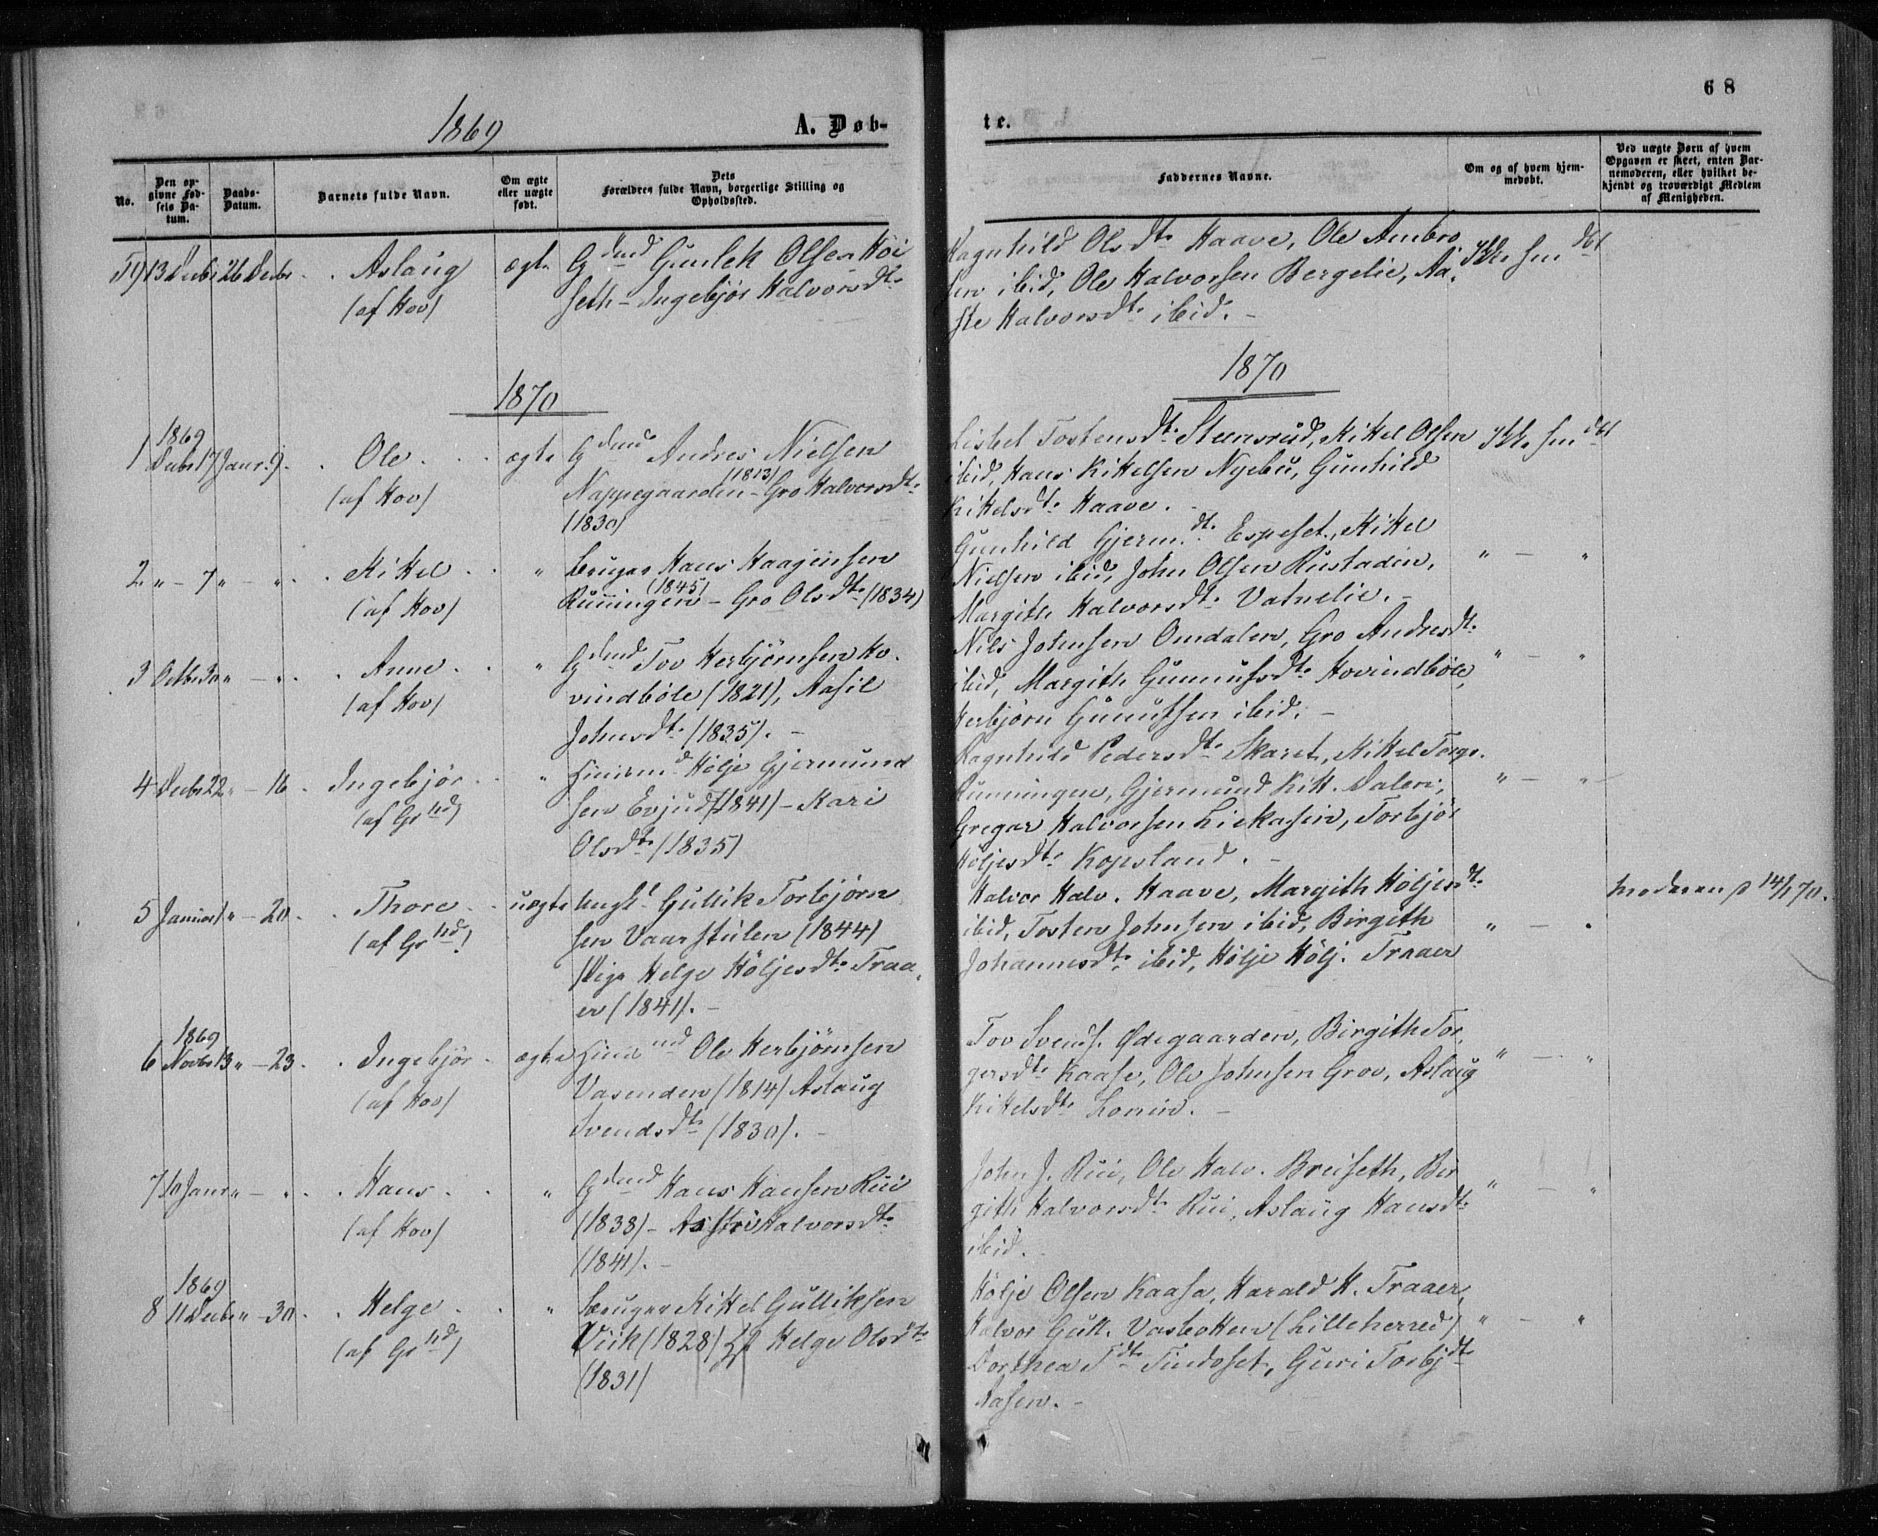 68
1869
A. Døb-
te.
No.
Den op-
givne Fød-
sels Da-
tum.
Daabs-
Datum.
Barnets fulde Navn.
Om ægte
eller uægte
født.
Dets
Forældres fulde Navn, borgerlige Stilling og
Opholdssted.
Faddernes Navne.
Om og af hvem hjem-
medøbt.
Ved uægte Børn af hvem
Opgaven er skeet, enten Bar-
nemoderen, eller hvilket be-
kjendt og troværdigt Medlem
af Menigheden.
13 Decbr 26 Decbr Aslaug ægte Gdmd Gunlek Olsen Høi
(af Hov) seth - Ingebjør Halvorsdtr
Ragnhild Olsdtr Haave, Ole Ambro
sen ibid, Ole Halvorsen Bergelie, Aa-
ste Halvorsdtr ibid. -
Ikke hmdbt
1870
1870
1869
1 Decbr 17 Janr 9. Ole ægte Gdmd Andres Nielsen
(af Hov) Nappegaarden (1813) - Gro Halvorsdtr
(1830)
Lisbet Tostensdtr Steensrud, Kittel Olsen
ibid, Hans Kittelsen Nyebu, Gunhild
Kittelsdtr Haave.
Ikke hmdbt
2 " - 7 " - " Kittel " bruger Hans Haagensen
(af Hov) Rünningen (1845) - Gro Olsdtr (1834)
Gunhild Gjerm.dtr Espeset, Kittel
Nielsen ibid, John Olsen Rustaden,
Margith Halvorsdtr Vatnelie. -
" - "
3 Octbr 30 " - " Anne " Gdmd Tov Herbjørnsen Ho-
(af Hov) vindbøle (1821), Aasil
Johnsdtr (1835). -
Nils Johnsen Omdalen, Gro Andresdtr
ibid, Margith Gunnufsdtr Hovindbøle,
Herbjørn Gunutsen ibid. -
" - "
4 Decbr 22 " - 16 Ingebjør " Huusmd Hølje Gjermund
(af Grnd) sen Evjudt (1841) - Kari
Olsdtr (1835)
Ragnhild Pedersdtr Skaret, Kittel Torge.
Rünningen, Gjermund Kitt. Dalen,
Gregar Halvorsen Liekaasin, Torbjør
Høljesdtr Kopsland. -
" - "
5 Januar 1 " - 20 Thore uægte Ungk. Gullik Torbjørn
(af Grnd) sen Vaarstulen (1844)
Pige Helge Høljesdtr Traa-
er (1841). -
Halvor Halv. Haave, Margith Høljesdtr
ibid, Tosten Johnsen ibid, Birgith
Johannesdtr ibid, Hølje Hølj. Traaer
" - "
Moderen p 14/1 70.
1869
6 Novbr 13 " - 23 Ingebjør ægte Huusmd Ole Herbjørnsen
(af Hov) Vasenden (1814) Aslaug
Svendsdtr (1830). -
Tov Svends. Ødegaarden, Birgith Tor-
gersdtr Kaase, Ole Johnsen Grov, Aslaug
Kittelsdtr Lonin. -
" - "
7 10 Janr " - " Hans " Gdmd Hans Hansen Rui
(af Hov) (1838) - Astri Halvorsdtr
(1841). -
John J. Rui, Ole Halv. Breiseth, Bir
gith Halvorsdtr Rui, Aslaug Hansdtr
ibid. -
" - "
1869
8 11 Decbr " - 30 Helge " bruger Kittel Gulliksen
(af Grnd) Viik (1828) Helge Olsdtr
(1831)
Hølje Olsen Kaasa, Harald H. Traaer,
Halvor Gull. Vasbotten (Lilleherred)
Dorthea Tdtr Tindoset, Guri Torbjdtr
Aasen. -
" - "